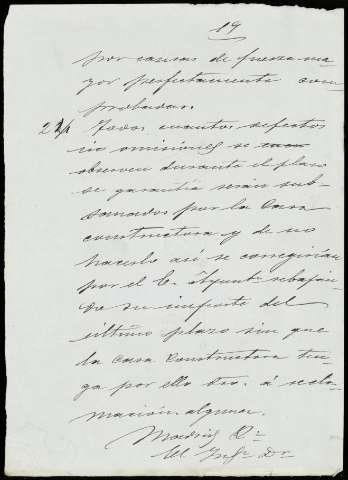 19
por causas de fuerza ma-
yor perfectamente com-
probadas.
22ª Todos cuantos defectos
ú omisiones se
observen durante el plazo
de garantía serán sub-
sanados por la Casa
constructora y de no
hacerlo así se corregirían
por el E. Ayunt. rebaján-
dose su importe del
último plazo sin que
la casa constructora ten-
ga por ello dro. á recla-
mación alguna.
Madrid
El Ingº Dr